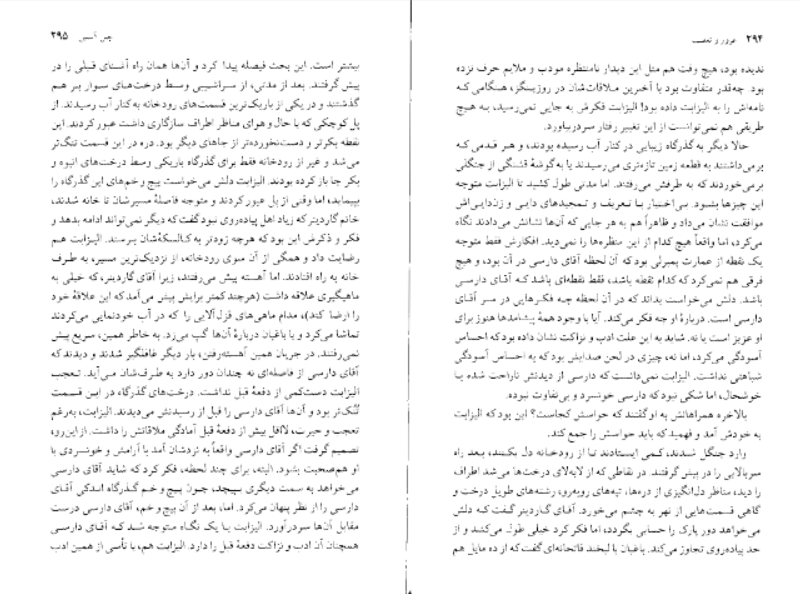 ۲۹۴ غرور و تعصب
ندیده بود، هیچ وقت هم مثل این دیدار نامنتظره مودب و ملایم حرف نزده
بود. چه‌قدر متفاوت بود با آخرین ملاقات‌شان در روزینگز، هنگامی که
نامه‌اش را به الیزابت داده بود! الیزابت فکرش به جایی نمی‌رسید، به هیچ
طریقی هم نمی‌توانست از این تغییر رفتار سردربیاورد.
حالا دیگر به گذرگاه زیبایی در کنار آب رسیده بودند، و هر قدمی که
برمی‌داشتند به قطعه زمین تازه‌تری می‌رسیدند یا به گوشهٔ قشنگی از جنگلی
برمی‌خوردند که به طرفش می‌رفتند. اما مدتی طول کشید تا الیزابت متوجه
این چیزها بشود. بی‌اختیار با تعریف و تمجیدهای دایی و زن‌دایی‌اش
موافقت نشان می‌داد و ظاهراً هم به هر جایی که آن‌ها نشانش می‌دادند نگاه
می‌کرد، اما واقعاً هیچ کدام از این منظره‌ها را نمی‌دید. افکارش فقط متوجه
یک نقطه از عمارت پمبرلی بود که آن لحظه آقای دارسی در آن بود، و هیچ
فرقی هم نمی‌کرد که کدام نقطه باشد، فقط نقطه‌ای باشد که آقای دارسی
باشد. دلش می‌خواست بداند که در آن لحظه چه فکرهایی در سر آقای
دارسی است. دربارهٔ او چه فکر می‌کند. آیا با وجود همهٔ پیشامدها هنوز برای
او عزیز است یا نه. شاید به این علت ادب و نزاکت نشان داده بود که احساس
آسودگی می‌کرد، اما نه، چیزی در لحن صدایش بود که به احساس آسودگی
شباهتی نداشت. الیزابت نمی‌دانست که دارسی از دیدنش ناراحت شده یا
خوشحال، اما شکی نبود که دارسی خونسرد و بی‌تفاوت نبوده.
بالاخره همراهانش به او گفتند که حواسش کجاست؟ این بود که الیزابت
به خودش آمد و فهمید که باید حواسش را جمع کند.
وارد جنگل شدند، کمی ایستادند تا از رودخانه دل بکنند، بعد راه
سربالایی را در پیش گرفتند. در نقاطی که از لابه‌لای درخت‌ها می‌شد اطراف
را دید، مناظر دل‌انگیزی از دره‌ها، تپه‌های روبه‌رو، رشته‌های طویل درخت و
گاهی قسمت‌هایی از نهر به چشم می‌خورد. آقای گاردینر گفت که دلش
می‌خواهد دور پارک را حسابی بگردد، اما فکر کرد خیلی طول می‌کشد و از
حد پیاده‌روی تجاوز می‌کند. باغبان با لبخند فاتحانه‌ای گفت که از ده مایل هم
جین آستین ۲۹۵
بیشتر است. این بحث فیصله پیدا کرد و آن‌ها همان راه آشنای قبلی را در
پیش گرفتند. بعد از مدتی، از سراشیبی وسط درخت‌های سوار بر هم
گذشتند و در یکی از باریک‌ترین قسمت‌های رودخانه به کنار آب رسیدند. از
پل کوچکی که با حال و هوای مناظر اطراف سازگاری داشت عبور کردند. این
نقطه بکرتر و دست‌نخورده‌تر از جاهای دیگر بود. دره در این قسمت تنگ‌تر
می‌شد و غیر از رودخانه فقط برای گذرگاه باریکی وسط درخت‌های انبوه و
بکر جا باز کرده بودند. الیزابت دلش می‌خواست پیچ و خم‌های این گذرگاه را
بپیماید، اما وقتی از پل عبور کردند و متوجه فاصلهٔ مسیرشان تا خانه شدند،
خانم گاردینر که زیاد اهل پیاده‌روی نبود گفت که دیگر نمی‌تواند ادامه بدهد و
فکر و ذکرش این بود که هرچه زودتر به کالسکه‌شان برسند. الیزابت هم
رضایت داد و همگی از آن سوی رودخانه، از نزدیک‌ترین مسیر، به طرف
خانه به راه افتادند. اما آهسته پیش می‌رفتند، زیرا آقای گاردینر، که خیلی به
ماهیگیری علاقه داشت (هرچند کمتر برایش پیش می‌آمد که این علاقهٔ خود
را ارضا کند)، مدام ماهی‌های قزل‌آلایی را که در آب خودنمایی می‌کردند
تماشا می‌کرد و با باغبان دربارهٔ آن‌ها گپ می‌زد. به خاطر همین، سریع پیش
نمی‌رفتند. در جریان همین آهسته‌رفتن، بار دیگر غافلگیر شدند و دیدند که
آقای دارسی از فاصله‌ای نه چندان دور دارد به طرف‌شان می‌آید. تعجب
الیزابت دست‌کمی از دفعهٔ قبل نداشت. درخت‌های گذرگاه در این قسمت
تُنُک‌تر بود و آن‌ها آقای دارسی را قبل از رسیدنش می‌دیدند. الیزابت، به‌رغم
تعجب و حیرت، لااقل بیش از دفعهٔ قبل آمادگی ملاقاتش را داشت. از این‌رو،
تصمیم گرفت اگر آقای دارسی واقعاً به نزدشان آمد با آرامش و خونسردی با
او هم‌صحبت بشود. البته، برای چند لحظه، فکر کرد که شاید آقای دارسی
می‌خواهد به سمت دیگری بپیچد، چون پیچ و خم گذرگاه اندکی آقای
دارسی را از نظر پنهان می‌کرد. اما، بعد از آن پیچ و خم، آقای دارسی درست
مقابل آن‌ها سردرآورد. الیزابت با یک نگاه متوجه شد که آقای دارسی
همچنان آن ادب و نزاکت دفعهٔ قبل را دارد. الیزابت هم، با تأسی از همین ادب